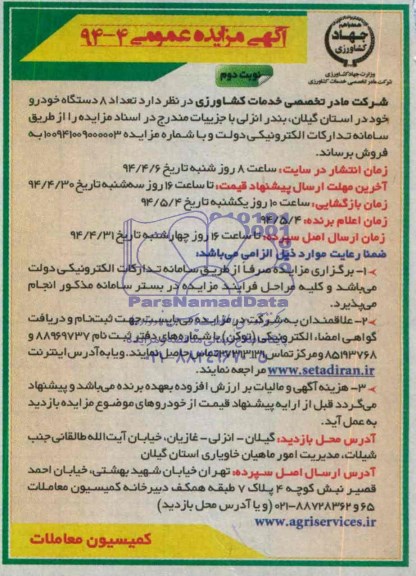 آگهی مزایده عمومی ۴-۹۴
همه با هم
جهاد
کشاورزی
وزارت جهاد کشاورزی
شرکت مادر تخصصی خدمات کشاورزی
نوبت دوم
شرکت مادر تخصصی خدمات کشاورزی در نظر دارد تعداد ۸ دستگاه خودرو
خود در استان گیلان، بندر انزلی با جزییات مندرج در اسناد مزایده را از طریق
سامانه تدارکات الکترونیکی دولت و با شماره مزایده ۱۰۰۹۴۱۰۹۰۰۰۰۰۳ به
فروش برساند.
زمان انتشار در سایت: ساعت ۸ روز شنبه تاریخ ۹۴/۴/۶
آخرین مهلت ارسال پیشنهاد قیمت: تا ساعت ۱۶ روز سه‌شنبه تاریخ ۹۴/۴/۳۰
زمان بازگشایی: ساعت ۱۰ روز یکشنبه تاریخ ۹۴/۵/۴
زمان اعلام برنده: ۹۴/۵/۴
زمان ارسال اصل سپرده: تا ساعت ۱۶ روز چهارشنبه تاریخ ۹۴/۴/۳۱
ضمنا رعایت موارد ذیل الزامی می‌باشد:
۱- برگزاری مزایده صرفا از طریق سامانه تدارکات الکترونیکی دولت
می‌باشد و کلیه مراحل فرایند مزایده در بستر سامانه مذکور انجام
می‌پذیرد.
ParsNamadData
۲- علاقمندان به شرکت در مزایده می‌بایست جهت ثبت‌نام و دریافت
گواهی امضاء الکترونیکی (توکن) با شماره‌های دفتر ثبت نام ۸۸۹۶۹۷۳۷ و
۸۵۱۹۳۷۶۸ و مرکز تماس ۲۷۳۱۳۱۳۱ تماس حاصل نمایند. و یا به آدرس اینترنت
www.setadiran.ir مراجعه نمایند.
۳- هزینه آگهی و مالیات بر ارزش افزوده بعهده برنده می‌باشد و پیشنهاد
می‌گردد قبل از ارایه پیشنهاد قیمت از خودروهای موضوع مزایده بازدید
به عمل آید.
آدرس محل بازدید: گیلان - انزلی - غازیان، خیابان آیت‌الله طالقانی جنب
شیلات، مدیریت امور ماهیان خاویاری استان گیلان
آدرس ارسال اصل سپرده: تهران خیابان شهید بهشتی، خیابان احمد
قصیر نبش کوچه ۴ پلاک ۷ طبقه همکف دبیرخانه کمیسیون معاملات
۶۵ و ۸۸۷۲۸۳۶۲-۰۲۱ (و یا آدرس محل بازدید)
www.agriservices.ir
کمیسیون معاملات